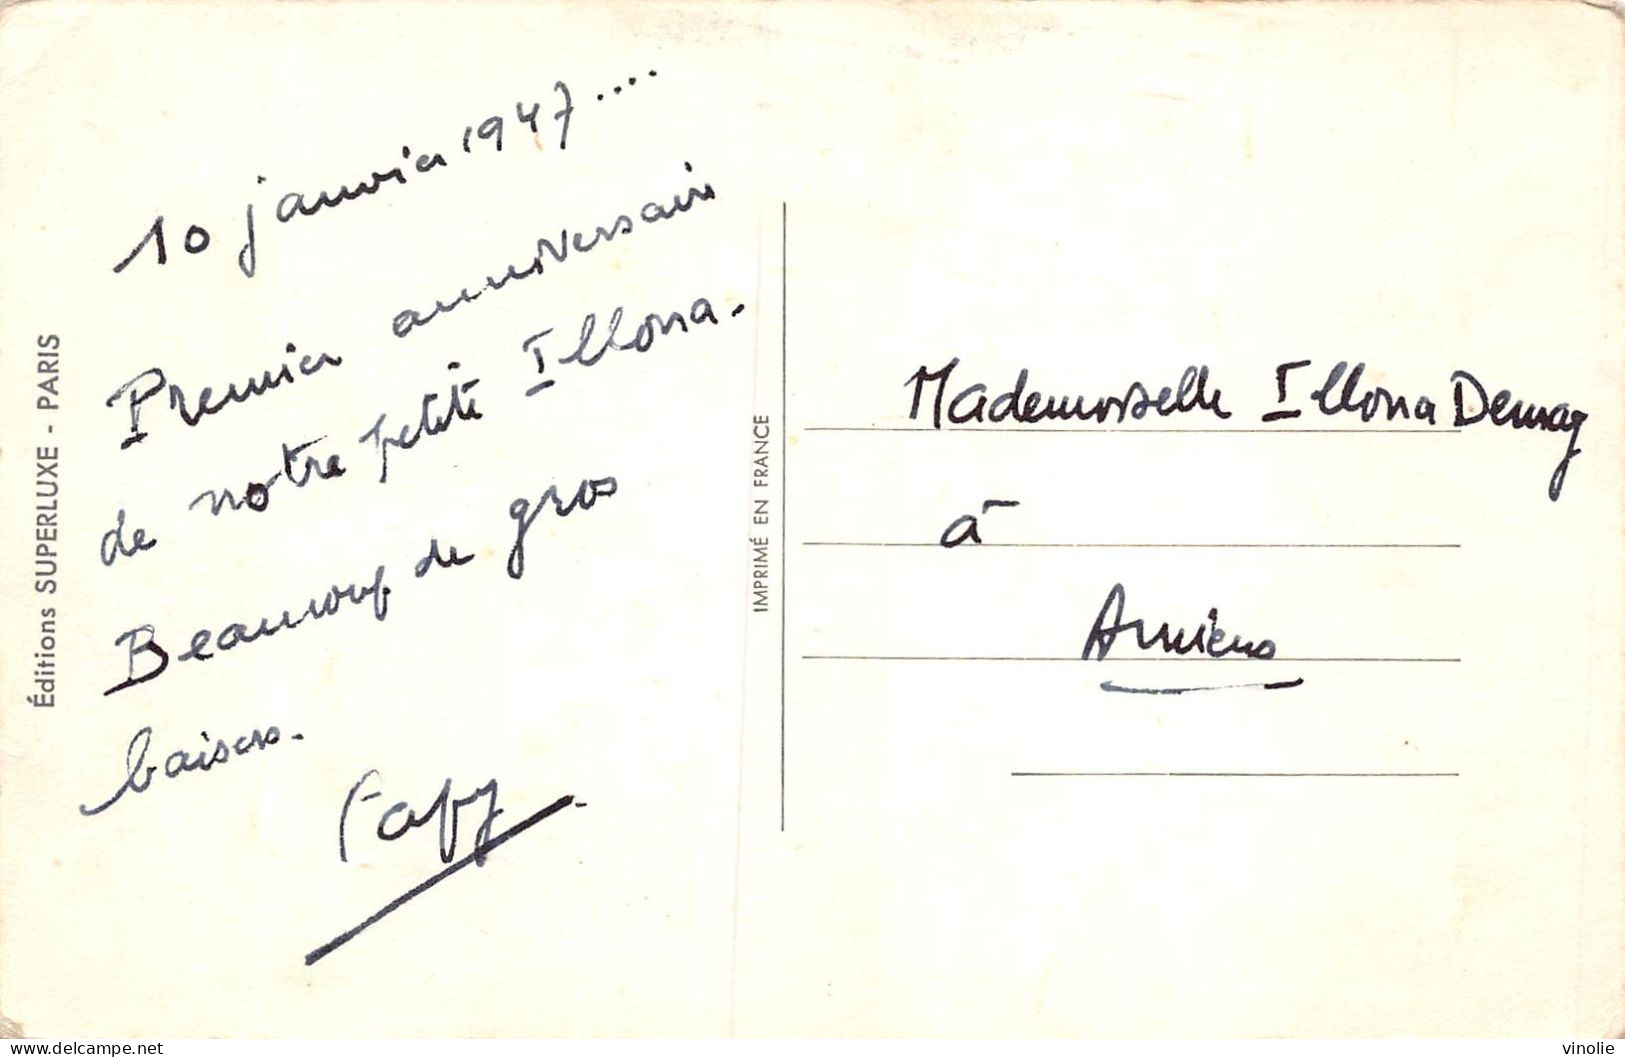 10 janvier 1947....
Premier anniversaire
de notre petite Illona.
Beaucoup de gros
baisers.
Papy
Éditions SUPERLUXE - PARIS
IMPRIMÉ EN FRANCE
Mademoiselle Illona
à
Amiens
delcampe.net
vinolie